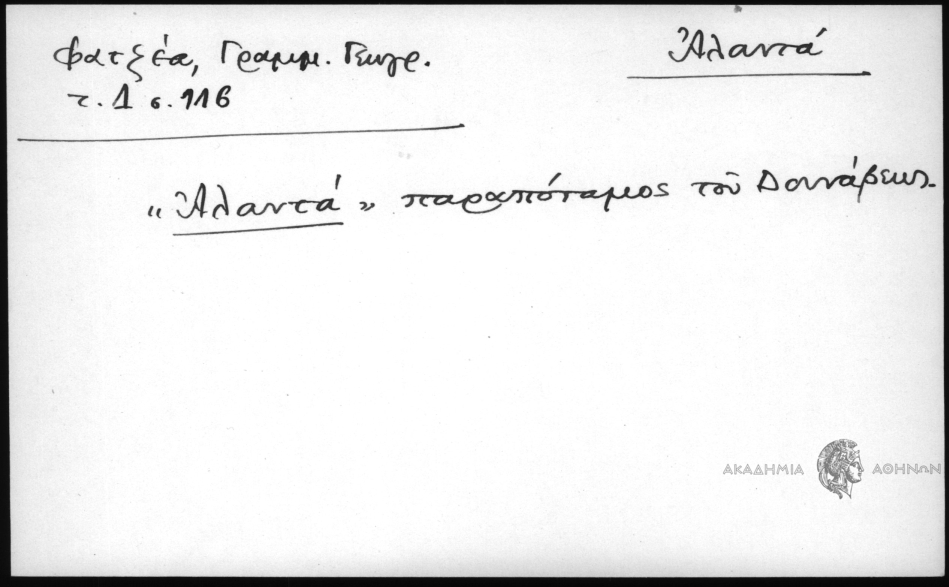 Φατζέα, Γραμμ. Γεωγρ.
τ. Δ σ. 116
Ἀλαντά
"Ἀλαντά" παραπόταμος τοῦ Δουνάβεως.
ΑΚΑΔΗΜΙΑ ΑΘΗΝΩΝ